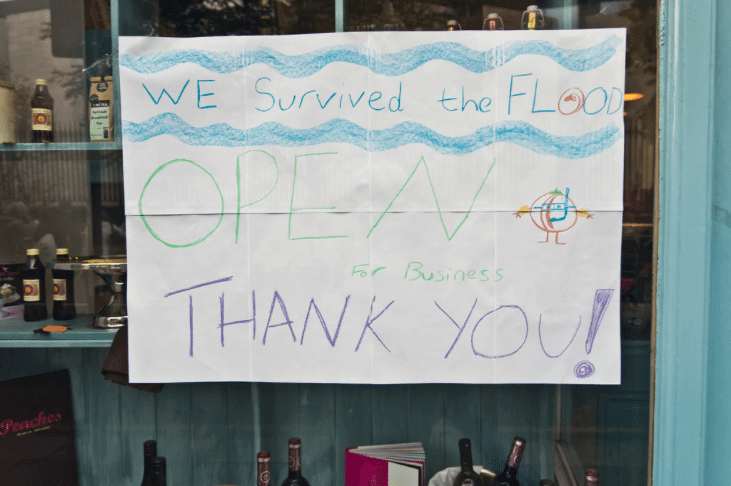 WE Survived the FLOOD
OPEN
For Business
THANK YOU!
Peaches